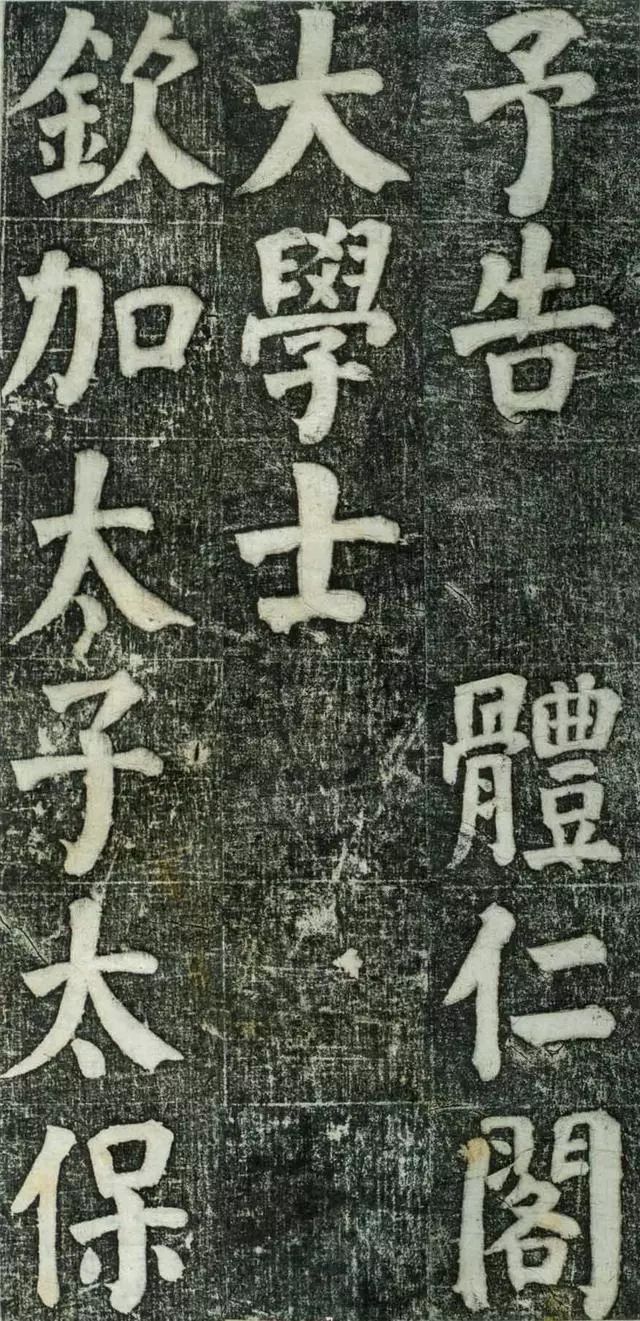 予告 體仁閣
大學士
欽加太子太保